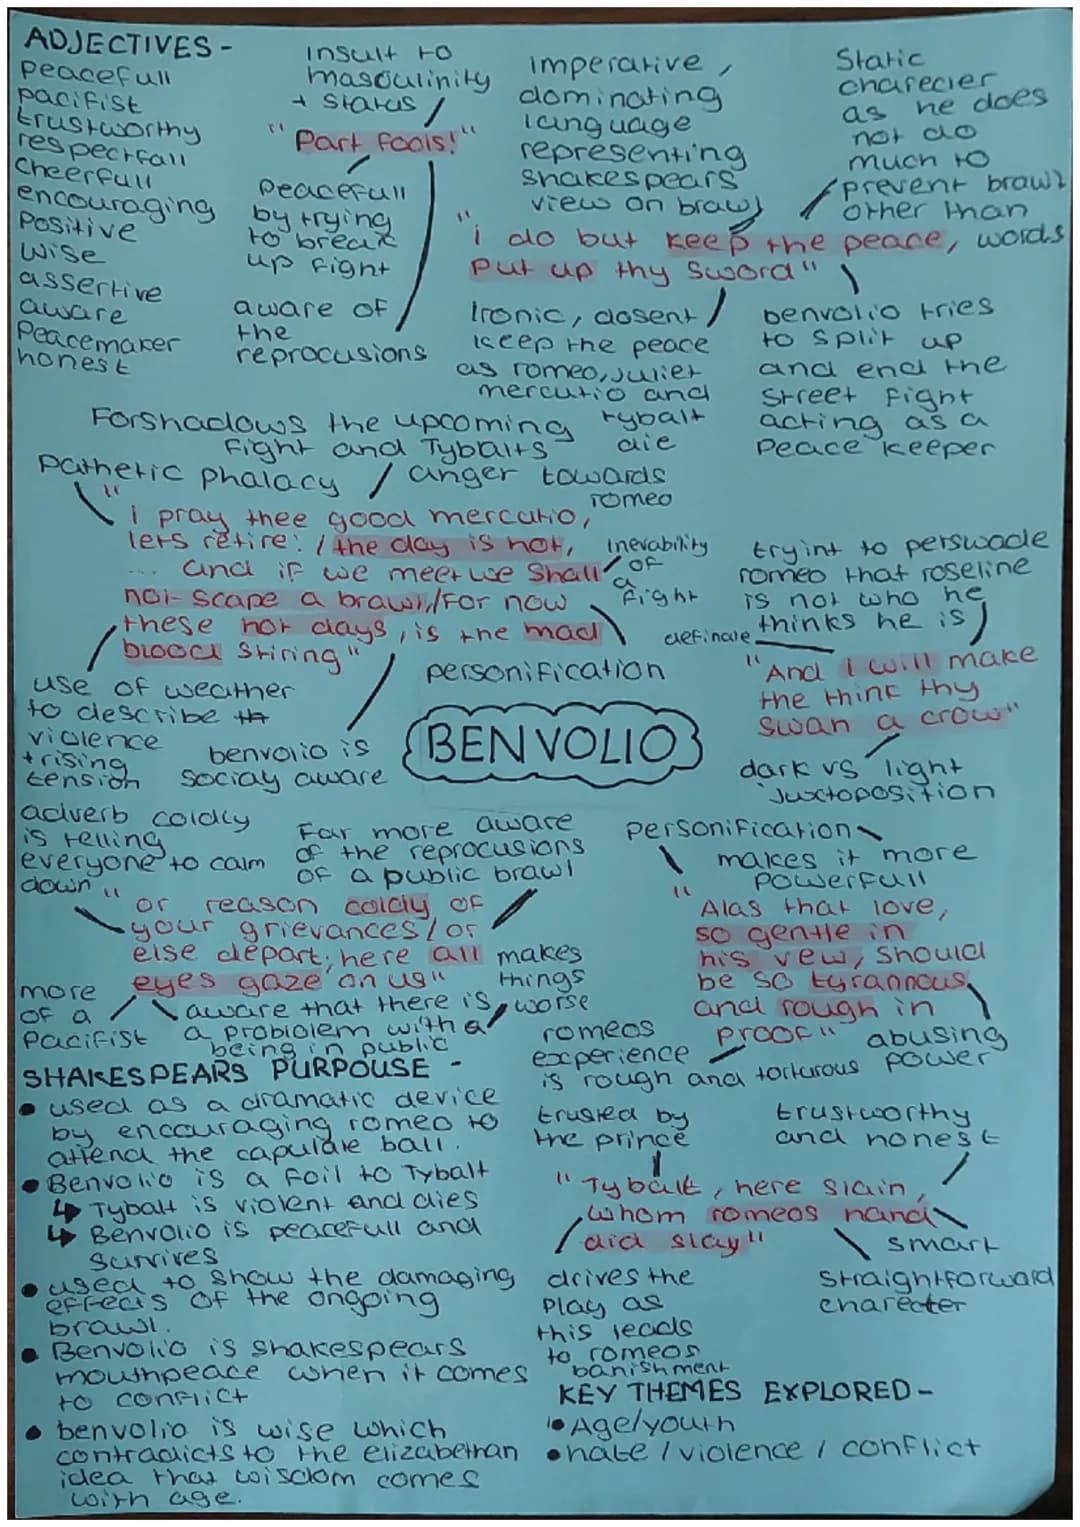 ADJECTIVES -
peacefull
pacifist
trustworthy
respectfall
cheerfull
encouraging
positive
wise
assertive
aware
Peacemaker
honest
insult to
masculinity
+ status
"Part fools!"
peacefull
by trying
to break
up fight
aware of
the
reprocusions
imperative,
dominating
language
representing
shakespears
view on brawl
Static
charecter
as he does
not do
much to
prevent brawl
other than
words
"i do but keep the peace,
put up thy sword"
Ironic, dosent
keep the peace
as romeo, juliet
mercutio and
tybalt
die
benvolio tries
to split up
and end the
street fight
acting as a
Peace keeper
Forshadows the upcoming
fight and Tybalts
anger towards
romeo
Pathetic phalacy
"i pray thee good mercutio,
lets retire: / the day is hot,
... and if we meet we shall
not scape a brawl,/for now
these hot days, is the mad
blood stiring"
inevability
of
a
fight
personification
use of weather
to describe th
violence
+ rising
tension
benvolio is
socialy aware
BENVOLIO
tryint to perswade
romeo that roseline
is not who he
thinks he is
definate
"And I will make
the think thy
swan a crow"
dark vs light
Juxtoposition
adverb coldly
is telling
everyone to calm
down
Far more aware
of the reprocusions
of a public brawl
"or reason coldly of
your grievances / or
else depart; here all
eyes gaze on us"
makes
things
worse
more
of a
Pacifist
aware that there is
a probiolem with a
being in public
personification
makes it more
powerfull
"Alas that love,
so gentle in
his vew, should
be so tyrannous
and rough in
proof"
abusing
power
romeos
experience
is rough and torturous
SHAKESPEARS PURPOUSE -
• used as a dramatic device
by encouraging romeo to
attend the capulate ball.
• Benvolio is a foil to Tybalt
↳ Tybalt is violent and dies
↳ Benvolio is peacefull and
survives
• used to show the damaging
effects of the ongoing
brawl.
• Benvolio is shakespears
mouthpeace when it comes
to conflict
• benvolio is wise which
contradicts to the elizabethan
idea that wisdom comes
with age.
trusted by
the prince
trustworthy
and honest
"Tybalt, here slain,
whom romeos hand
did slay"
smart
straightforward
charecter
drives the
play as
this leads
to romeos
banishment
KEY THEMES EXPLORED -
• Age/youth
• hate / violence / conflict